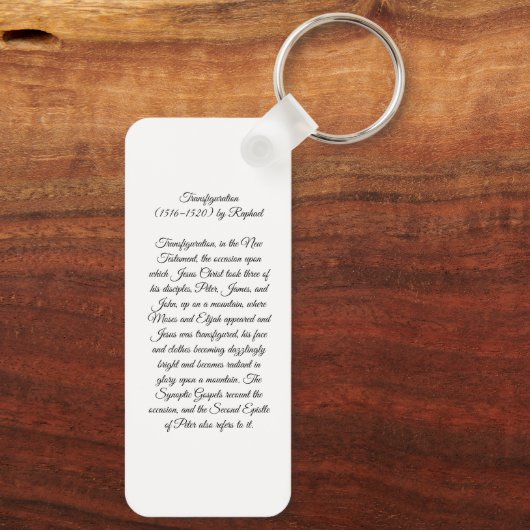 Transfiguration
(1516–1520) by Raphael
Transfiguration, in the New
Testament, the occasion upon
which Jesus Christ took three of
his disciples, Peter, James, and
John, up on a mountain, where
Moses and Elijah appeared and
Jesus was transfigured, his face
and clothes becoming dazzlingly
bright and becomes radiant in
glory upon a mountain. The
Synoptic Gospels recount the
occasion, and the Second Epistle
of Peter also refers to it.